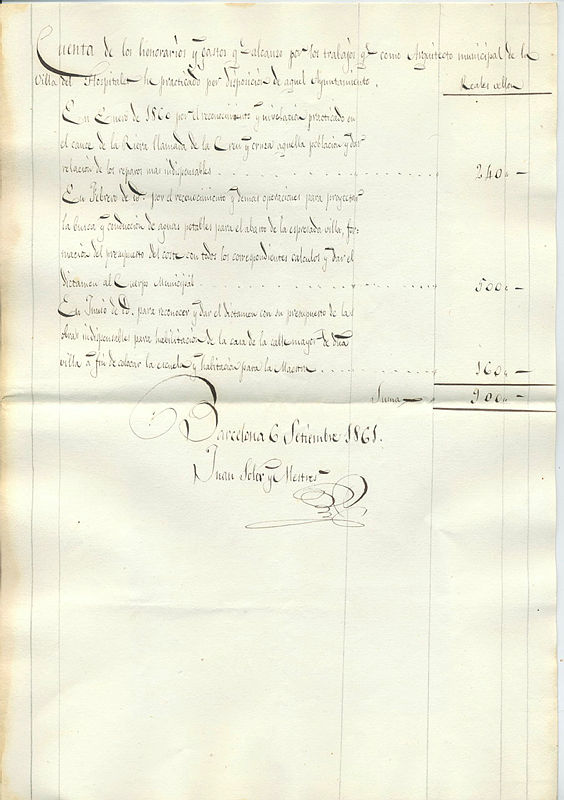 Cuenta de los honorarios y gastos qe. alcanso por los trabajos qe. como Arquitecto municipal de la
Villa del Hospitalet he practicado por disposicion de aquel Ayuntamiento.
Reales vellon
En Enero de 1860 por el reconocimiento y nivelacion practicado en
el cauce de la Riera llamada de la Creu y cruza aquella poblacion y dar
relacion de los reparos mas indispensables 240,,
En Febrero de id. por el reconocimiento y demas operaciones para proyectar
la busca y conduccion de aguas potables para el abasto de la espresada villa, for-
macion del presupuesto del coste con todos los correspondientes calculos y dar el
dictamen al Cuerpo Municipal 500,,
En Junio de id. para reconocer y dar el dictamen con su presupuesto de las
obras indispensables para habilitacion de la casa de la calle mayor de dha
villa a fin de colocar la escuela y habitacion para la Maestra 160,,
Suma 900,,
Barcelona 6 Setiembre 1861.
Juan Soler y Mestres